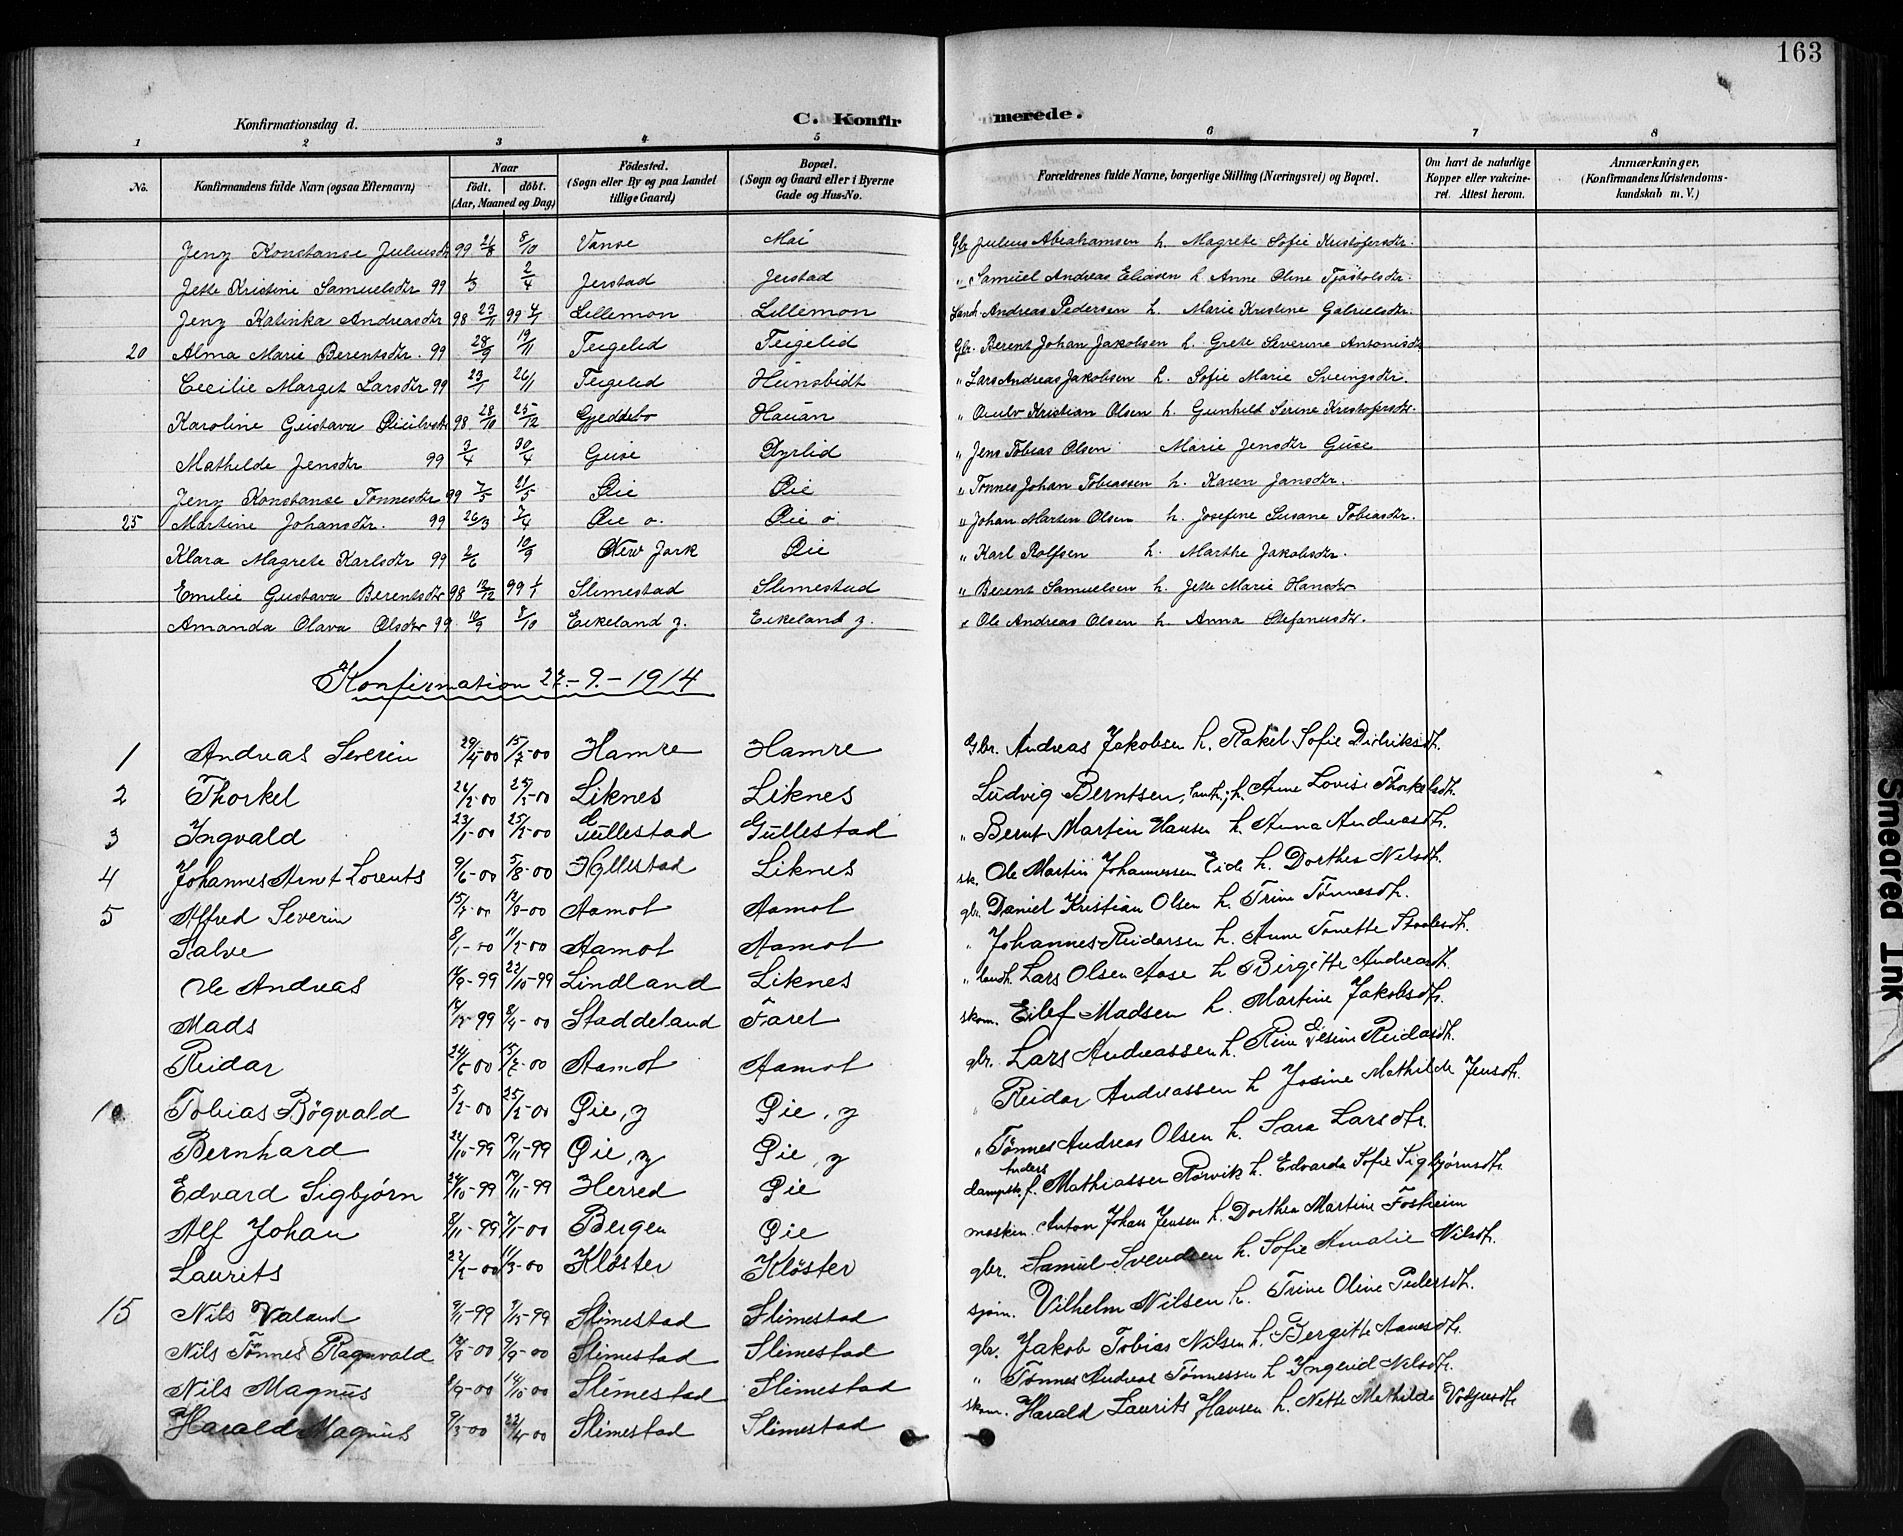 163
Konfirmationsdag d.
C. Konfirmerede.
1 2 3 4 5 6 7 8
No. Konfirmandens fulde Navn (ogsaa Efternavn) Naar født. døbt. (Aar, Maaned og Dag) Födested. (Sogn eller By og paa Landet tillige Gaard) Bopæl. (Sogn og Gaard eller i Byerne Gade og Hus-No. Forældrenes fulde Navne, borgerlige Stilling (Næringsvei) og Bopæl. Om havt de naturlige Kopper eller vakcineret. Attest herom. Anmærkninger, (Konfirmandens Kristendomskundskab m. V.)
Jeny Konstanse Juliusdtr 99 8/10 Vanse Mai Gbr Julius Abrahamsen h. Magrete Sofie Kristofersdtr.
Jette Kristine Samuelsdtr 99 1/3 2/4 Jerstad Jerstad " Samuel Andreas Eliasen h Anne Oline Tjøstolsdtr.
Jeny Katinka Andreasdtr 98 23/11 99 Lillemon Lillemon Landh Andreas Pedersen h. Marie Kristine Gabrielsdtr.
20 Alma Marie Berentsdtr. 99 28/9 19/11 Teigelid Feigelid Gbr. Berent Johan Jakobsen h. Grete Severine Antonisdtr
Cecilie Marget Larsdtr 99 23/1 26/11 Teigelid Hunsbidt " Lars Andreas Jakobsen h. Sofie Marie Sveingsdtr.
Karoline Gustava 98 28/10 25/12 Gjeddebo Hauan " Kristian Olsen h. Gunhild Serine Kristofersdtr.
Mathilde Jensdtr 99 3/4 30/4 Guse Dyrlid " Jens Tobias Olsen Marie Jensdtr Guse
Jeny Konstanse Tønnesdtr 99 7/5 21/5 Øie Øie " Tønnes Johan Tobiassen h. Karen Jansdtr.
25 Martine Johansdtr. 99 26/3 7/4 Øie o. Øie o " Johan Martin Olsen h. Josefine Susane Tobiasdtr.
Klara Magrete Karlsdtr 99 2/6 10/9 New Jork Øie " Karl Rolfsen h. Marthe Jakobsdtr.
Emilie Gustava Berentsdtr 98 12/12 99 Slimestad Slimestad " Berent Samuelsen h. Jette Marie Hansdtr
Amanda Olava Olsdtr 99 10/9 8/10 Eikeland y. Eikeland y. " Ole Andreas Olsen h. Anna Stefanusdtr.
Konfirmation 27.-9.-1914
1 Andreas Severin 29/4-00 15/7-00 Hamre Hamre Gbr. Andreas Jakobsen h. Rakel Sofie Didriksdt.
2 Thorkel 26/2-00 25/3-00 Liknes Liknes Ludvig Berntsen, h. Anne Lovise Thorkelsdt.
3 Ingvald 23/1-00 25/2-00 Gullestad Gullestad " Bernt Martin Hansen h. Anna Andreasdt.
4 Johannes Arnt Lorents 9/6-00 5/8-00 Hyllestad Liknes sk. Ole Martin Johannessen Eide h. Dorthea Nilsdt.
5 Alfred Severin 12/8-00 Aamot Aamot gbr. Daniel Kristian Olsen h. Trine Tønnesdt.
Salve 8/1-00 11/2-00 Aamot Aamot " Johannes Reidarsen h. Anne Tonette
Ole Andreas 99 22/10-99 Lindland Liknes " landh. Lars Olsen Aase h Birgitte Andreasdt.
Mads 99 8/4-00 Staddeland Faret skom. Eilef Madsen h. Martine Jakobsdt.
Reidar 00 15/7-00 Aamot Aamot gbr. Lars Andreassen h. Gesine Reidarsdt.
10 Tobias Bøgvald 5/2-00 25/2-00 Øie, y Øie, y " Reidar Andreassen h Josine Mathilde Jensdt.
Bernhard 22/10-99 19/11-99 Øie, y Øie, y " Tønnes Andreas Olsen h. Sara Larsdt.
Edvard Sigbjørn 24/10-99 19/11-99 Herred Øie dampsk.f. Anders Mathiassen Rørvik h. Edvarda Sofie Sigbjørnsdt.
Alf Johan 8/11-99 7/1-00 Bergen Øie maskin. Anton Johan Jensen h. Dorthea Martine Fosheim
Laurits 22/2-00 11/3-00 Kløster Kløster gbr. Samuel Svendsen h. Sofie Amalie Nilsdt.
15 Nils Valand 99 99 Slimestad Slimestad sjøm. Vilhelm Nilsen h. Trine Oline Pedersdt.
Nils Tønnes Ragnvald 00 9/9-00 Slimestad Slimestad gbr. Jakob Tobias Nilsen h. Bergitte Aanesdt.
Nils Magnus 8/9-00 14/10-00 Slimestad Slimestad " Tønnes Andreas Tønnessen h Ingerid Nilsdt.
Harald Magnus 9/3-00 22/4-00 Slimestad Slimestad skom. Harald Laurits Hansen h. Nette Mathilde
Smeared Ink